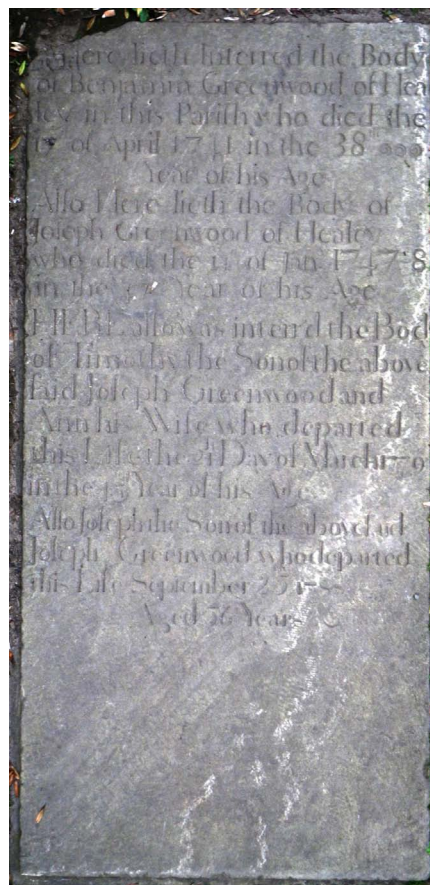 Here lieth Interred the Body
of Benjamin Greenwood of Hea
ley in this Parish who died the
of April 1741 in the 38
Year of his Age
Also Here lieth the Body of
Joseph Greenwood of Healey
who died the 11 of Jan 1747:8
in the Year of his Age
HERE also was interrd the Bod
of Timothy the Son of the above
said Joseph Greenwood and
Ann his Wife who departed
this Life the Day of March
in the Year of his Age
Also Joseph the Son of the above sd
Joseph Greenwood who departed
this Life September 25
Aged 56 Years